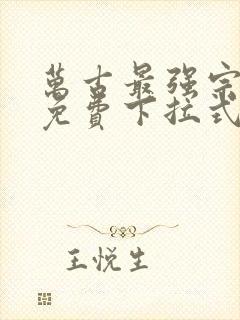 萬古最强宗
免費下拉式
王悦生